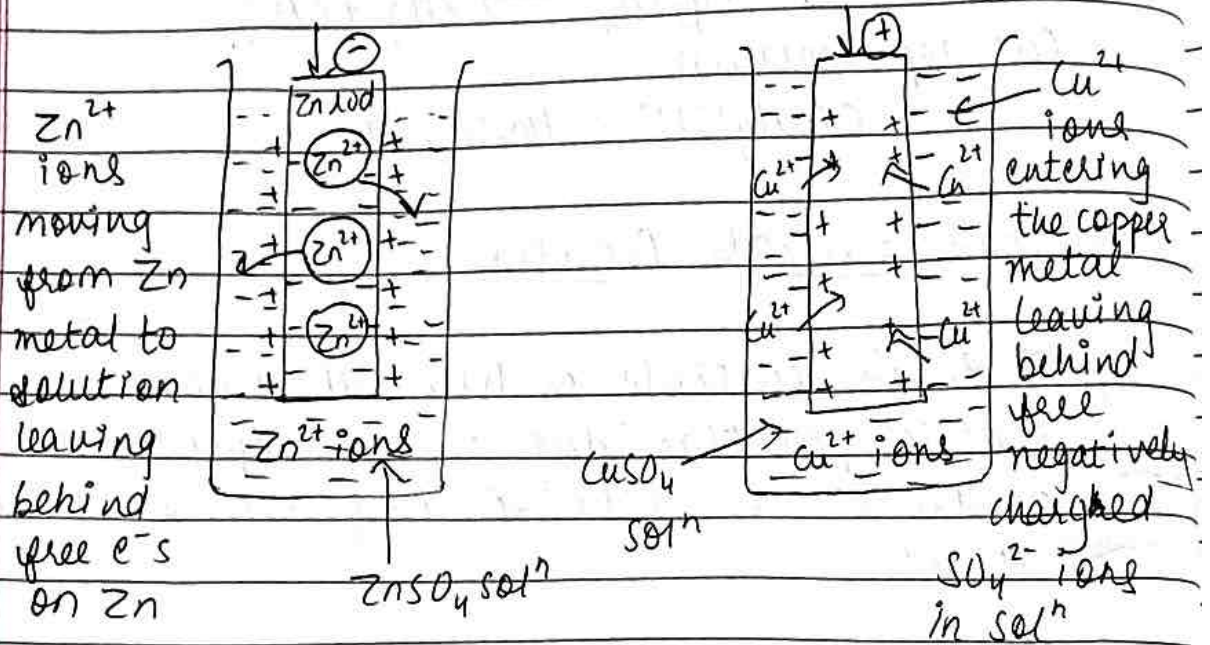 Zn²⁺
ions
moving
from Zn
metal to
solution
leaving
behind
free e⁻s
on Zn
−
Zn rod
Zn²⁺
Zn²⁺
Zn²⁺
Zn²⁺ ions
ZnSO₄ solⁿ
+
Cu²⁺
Cu²⁺
Cu²⁺
Cu²⁺
Cu²⁺ ions
CuSO₄
solⁿ
Cu²⁺
ions
entering
the copper
metal
leaving
behind
free
negatively
charged
SO₄²⁻ ions
in solⁿ